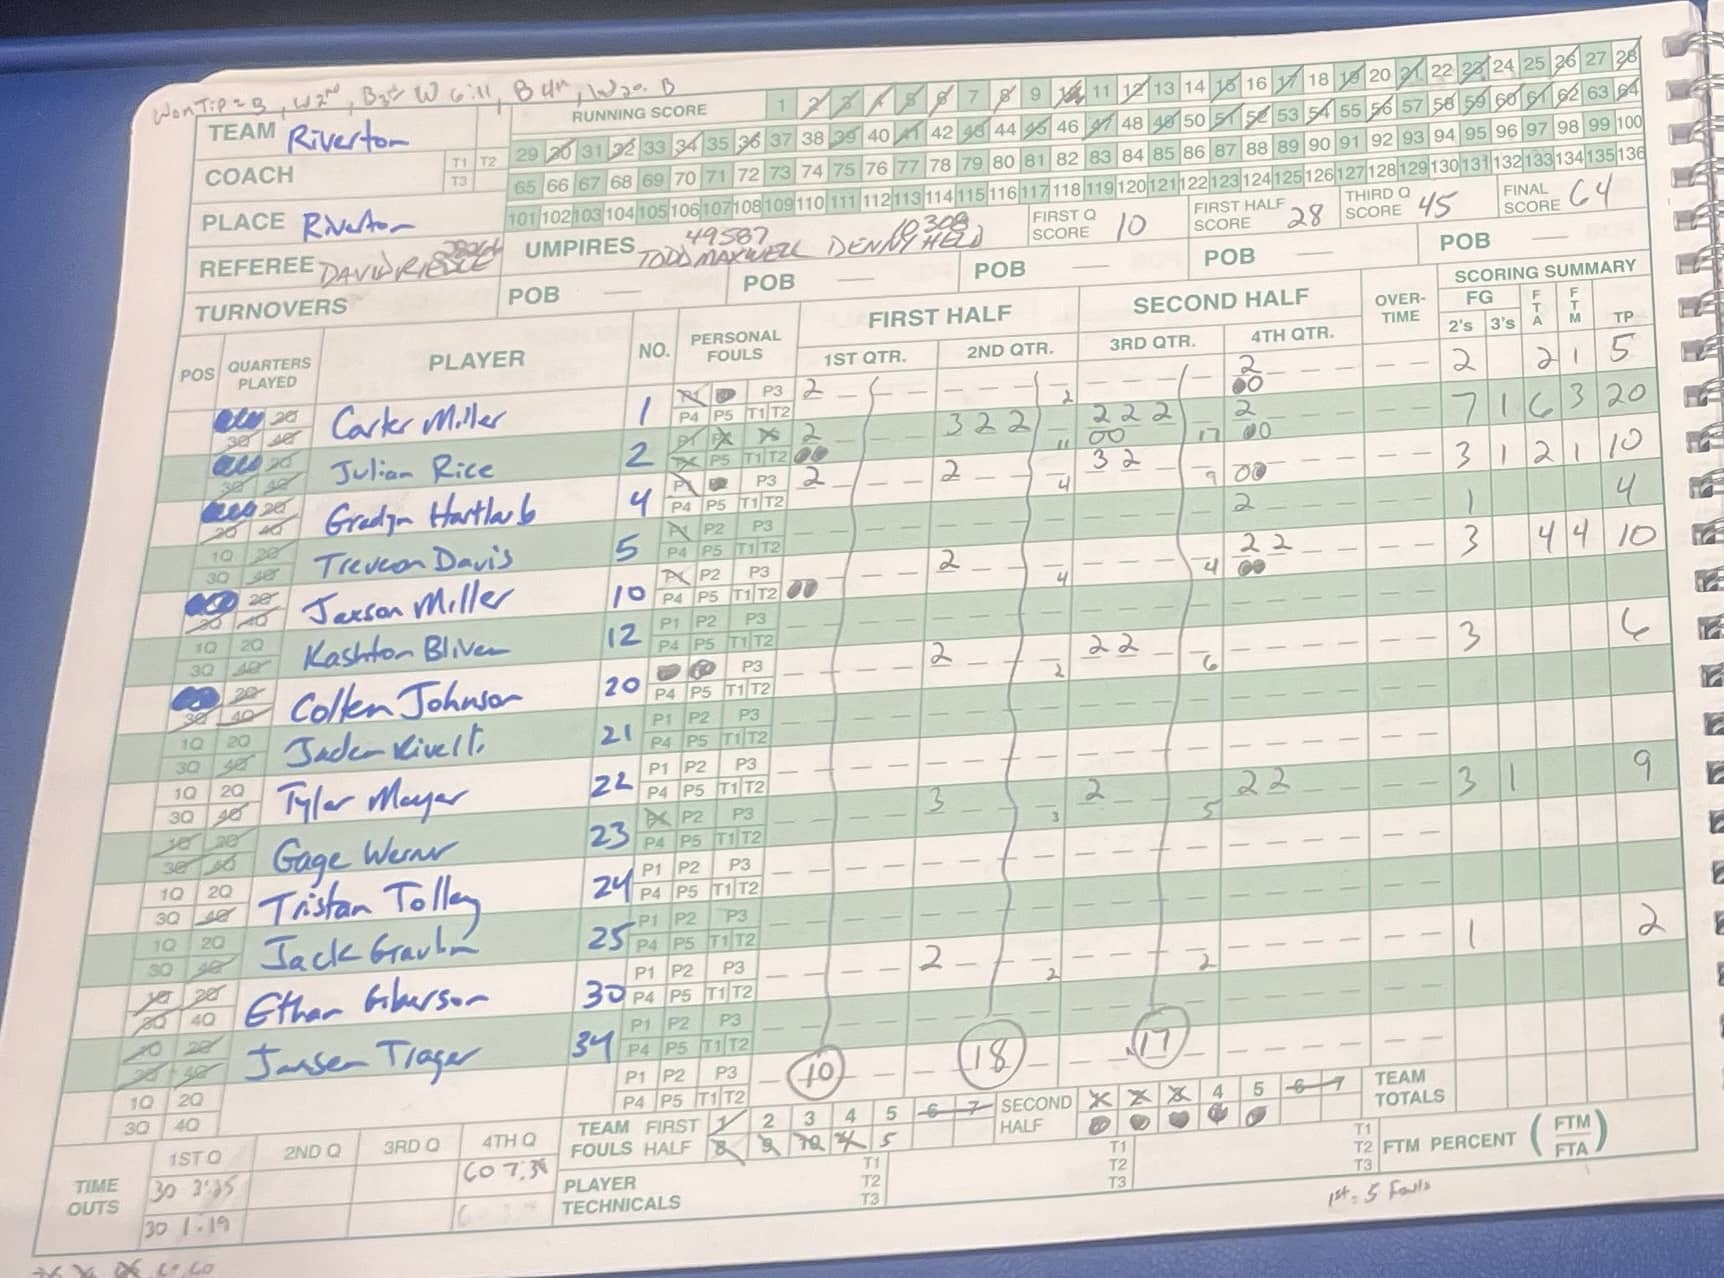 Won Tip = B, W 2nd, B 3rd, W 6:11, B 4th,
RUNNING SCORE 1 2 3 4 5 6 7 8 9 10 11 12 13 14 15 16 17 18 19 20 21 22 23 24 25 26 27 28
TEAM Riverton
29 30 31 32 33 34 35 36 37 38 39 40 41 42 43 44 45 46 47 48 49 50 51 52 53 54 55 56 57 58 59 60 61 62 63 64
COACH T1 T2 T3
65 66 67 68 69 70 71 72 73 74 75 76 77 78 79 80 81 82 83 84 85 86 87 88 89 90 91 92 93 94 95 96 97 98 99 100
101 102 103 104 105 106 107 108 109 110 111 112 113 114 115 116 117 118 119 120 121 122 123 124 125 126 127 128 129 130 131 132 133 134 135 136
PLACE Riverton
FIRST Q SCORE 10 FIRST HALF SCORE 28 THIRD Q SCORE 45 FINAL SCORE 64
REFEREE DAVID
UMPIRES 49587 TODD MAXWELL 10308 DENNY HELD
TURNOVERS POB — POB — POB — POB — POB —
POS QUARTERS PLAYED PLAYER NO. PERSONAL FOULS FIRST HALF SECOND HALF OVER-TIME SCORING SUMMARY
1ST QTR. 2ND QTR. 3RD QTR. 4TH QTR. FG 2's 3's FTA FTM TP
Carter Miller 1 P3 P4 P5 T1 T2 2 2 2 2 2 1 5
Julian Rice 2 P5 T1 T2 2 3 2 2 11 2 2 2 17 2 7 1 6 3 20
Gradyn Hartlaub 4 P1 P3 P4 P5 T1 T2 2 2 4 3 2 9 3 1 2 1 10
1Q 2Q 3Q 4Q Treveon Davis 5 P1 P2 P3 P4 P5 T1 T2 2 1 4
Jaxson Miller 10 P1 P2 P3 P4 P5 T1 T2 2 4 4 2 2 3 4 4 10
1Q 2Q 3Q 4Q Kashton Bliven 12 P1 P2 P3 P4 P5 T1 T2
Colten Johnson 20 P3 P4 P5 T1 T2 2 2 2 2 6 3 6
1Q 2Q 3Q 4Q 21 P1 P2 P3 P4 P5 T1 T2
1Q 2Q 3Q 4Q Tyler Mayer 22 P1 P2 P3 P4 P5 T1 T2
1Q 2Q 3Q 4Q Gage Werner 23 P1 P2 P3 P4 P5 T1 T2 3 3 2 5 2 2 3 1 9
1Q 2Q 3Q 4Q Tristan Tolley 24 P1 P2 P3 P4 P5 T1 T2
1Q 2Q 3Q 4Q Jack 25 P1 P2 P3 P4 P5 T1 T2
1Q 2Q 3Q 4Q Ethan Giberson 30 P1 P2 P3 P4 P5 T1 T2 2 2 2 1 2
1Q 2Q 3Q 4Q Jansen Trager 34 P1 P2 P3 P4 P5 T1 T2
1Q 2Q 3Q 4Q P1 P2 P3 P4 P5 T1 T2 10 18 17
TEAM FOULS FIRST HALF 1 2 3 4 5 6 7 8 9 10 4 5
SECOND HALF 4 5 6 7
TEAM TOTALS
TIME OUTS 1ST Q 2ND Q 3RD Q 4TH Q
30 3:25 60 7:38
30 1:19
PLAYER TECHNICALS T1 T2 T3 T1 T2 T3 T1 T2 T3
FTM PERCENT (FTM/FTA)
1st = 5 Fouls